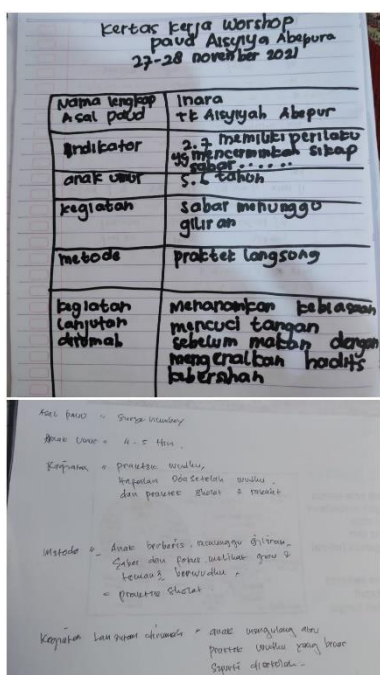 Kertas Kerja Worshop
paud Aisyiya Abepura
27-28 november 2021
Nama lengkap Inara
Asal paud TK Aisyiyah Abepur
Indikator 2.7 memiliki perilaku
yg mencerminkan sikap
sabar......
anak umur 5.6 tahun
kegiatan sabar menunggu
giliran
metode praktek langsong
kegiatan Menanamkan kebiasaan
lanjutan mencuci tangan
dirumah sebelum makan dengan
mengenalkan hadits
kebersihan
Asal PAUD =
Anak Umur = 4-5 thn.
Kegiatan = praktek wudhu,
hapalan Doa setelah wudhu
dan praktek sholat 2 rakaat
Metode = Anak berbaris menunggu giliran.
Sabar dan fokus melihat guru &
teman2 berwudhu.
= praktek sholat
Kegiatan Lanjutan dirumah = anak mengulang
praktek wudhu yang benar
seperti disekolah.